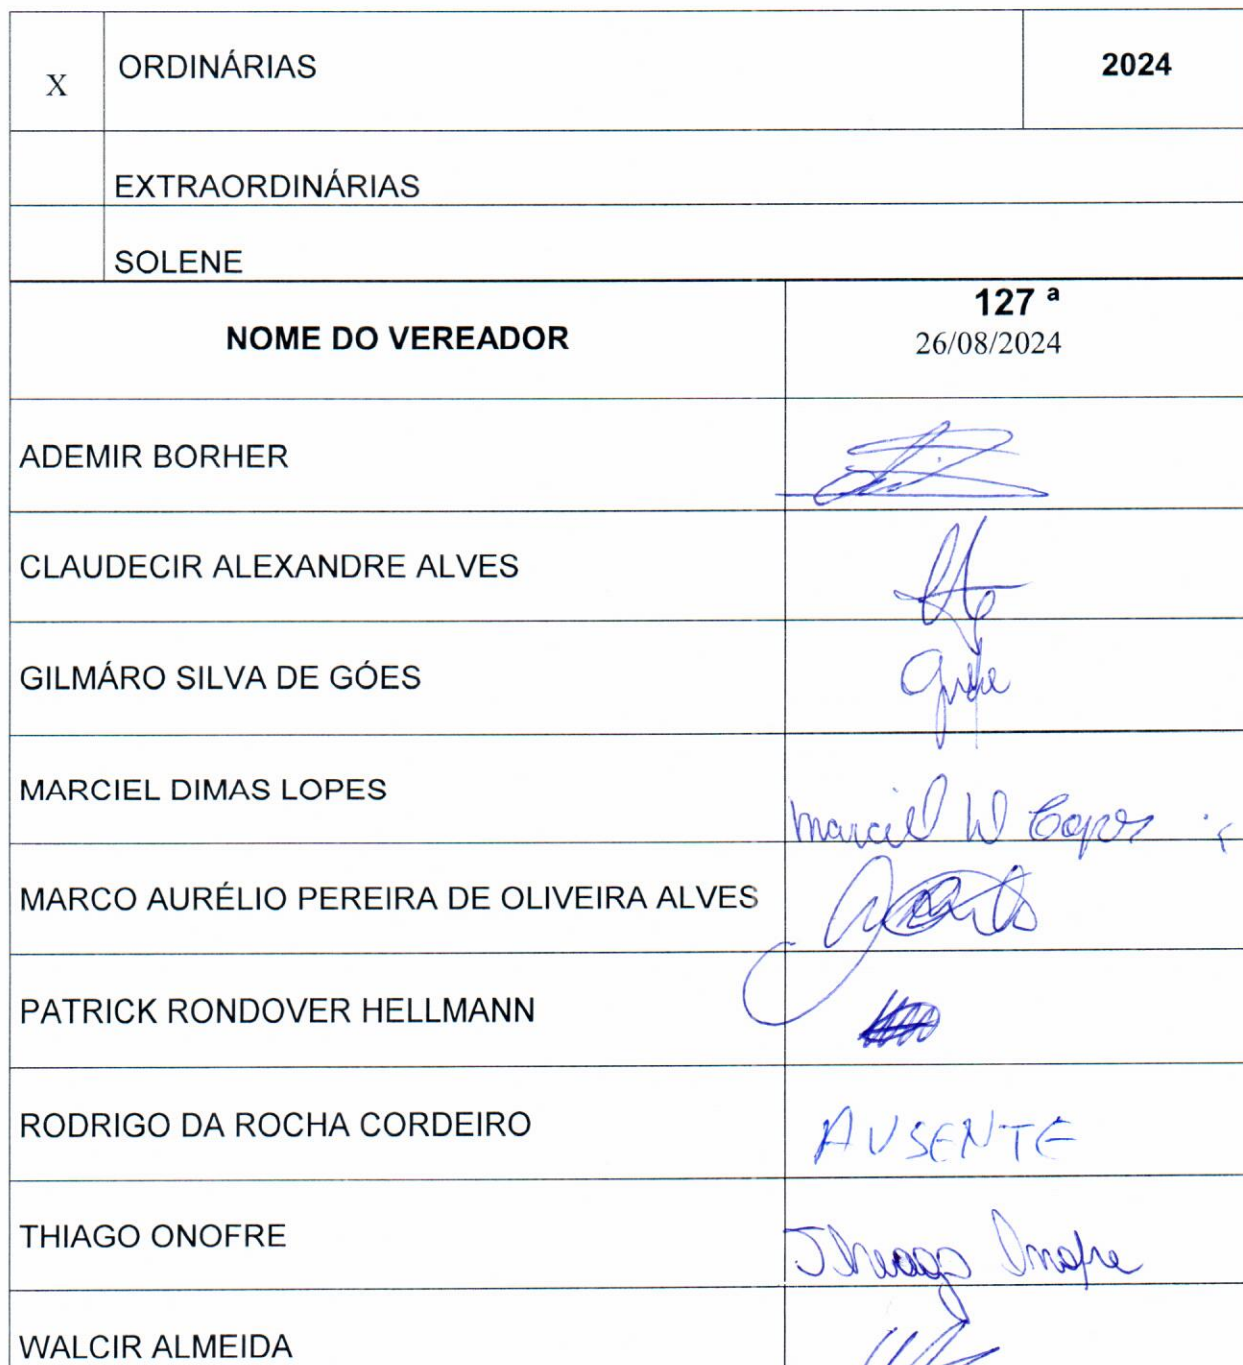 X ORDINÁRIAS 2024
EXTRAORDINÁRIAS
SOLENE
NOME DO VEREADOR 127 ª
26/08/2024
ADEMIR BORHER
CLAUDECIR ALEXANDRE ALVES
GILMÁRO SILVA DE GÓES
MARCIEL DIMAS LOPES
MARCO AURÉLIO PEREIRA DE OLIVEIRA ALVES
PATRICK RONDOVER HELLMANN
RODRIGO DA ROCHA CORDEIRO AUSENTE
THIAGO ONOFRE Thiago Onofre
WALCIR ALMEIDA